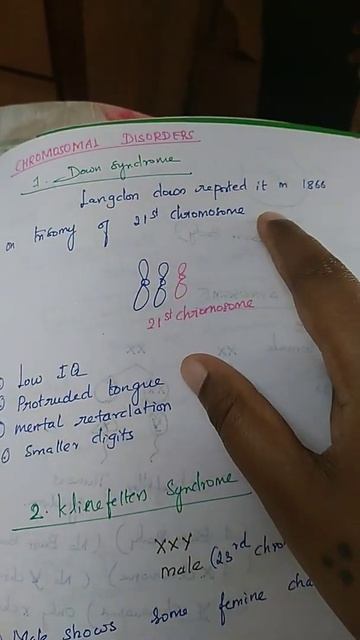 CHROMOSOMAL DISORDERS
1. Down Syndrome
Langdon down reported it in 1866
on trisomy of 21st chromosome
21st chromosome
Low IQ
Protruded tongue
mental retardation
Smaller digits
2. Klinefelters Syndrome
XXY
male (23rd chro
Male shows some femine cha